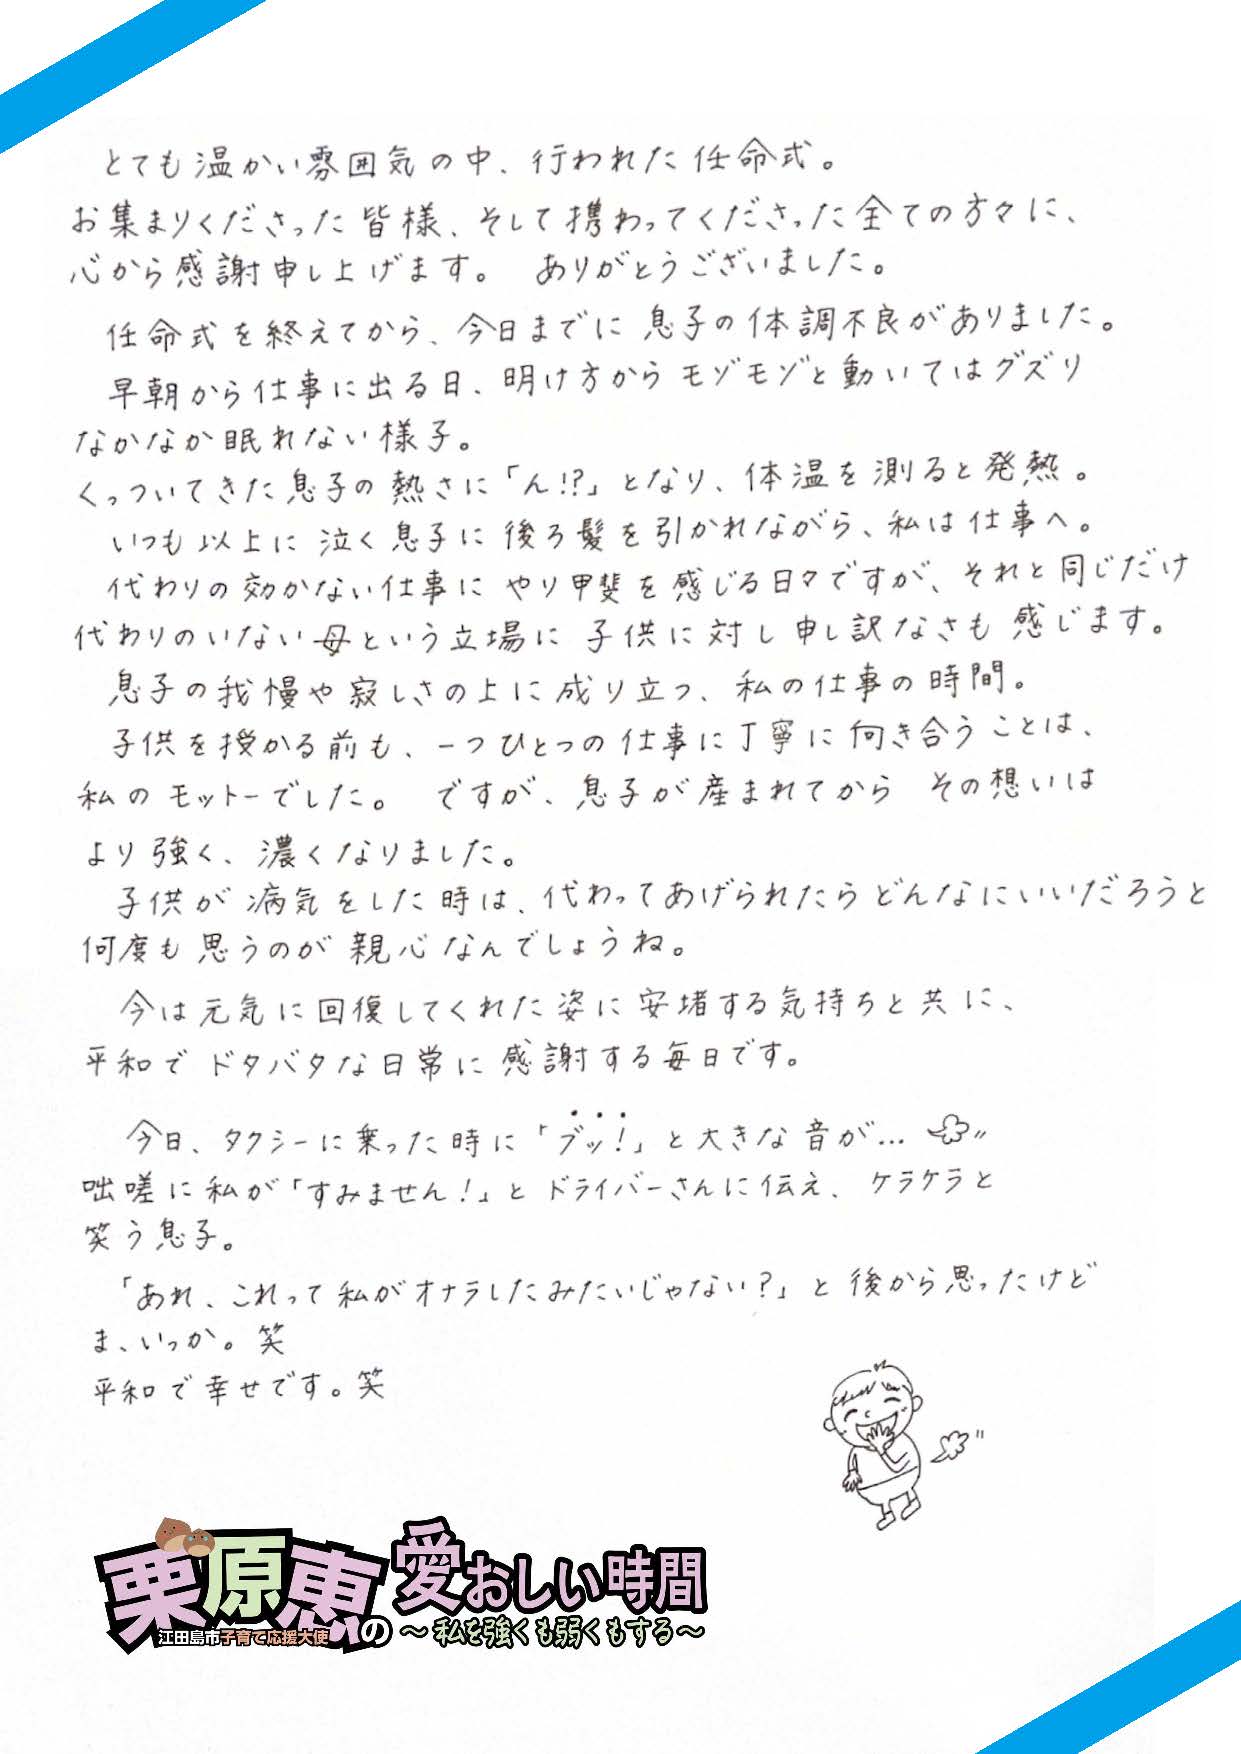 とても温かい雰囲気の中、行われた任命式。
お集まりくださった皆様、そして携わってくださった全ての方々に、
心から感謝申し上げます。 ありがとうございました。
任命式を終えてから、今日までに息子の体調不良がありました。
早朝から仕事に出る日、明け方からモゾモゾと動いてはグズリ
なかなか眠れない様子。
くっついてきた息子の熱さに「ん!?」となり、体温を測ると発熱。
いつも以上に泣く息子に後ろ髪を引かれながら、私は仕事へ。
代わりの効かない仕事にやり甲斐を感じる日々ですが、それと同じだけ
代わりのいない母という立場に子供に対し申し訳なさも感じます。
息子の我慢や寂しさの上に成り立つ、私の仕事の時間。
子供を授かる前も、一つひとつの仕事に丁寧に向き合うことは、
私のモットーでした。 ですが、息子が産まれてから その想いは
より強く、濃くなりました。
子供が病気をした時は、代わってあげられたらどんなにいいだろうと
何度も思うのが親心なんでしょうね。
今は元気に回復してくれた姿に安堵する気持ちと共に、
平和でドタバタな日常に感謝する毎日です。
今日、タクシーに乗った時に「ブッ!」と大きな音が…
咄嗟に私が「すみません!」とドライバーさんに伝え、ケラケラと
笑う息子。
「あれ、これって私がオナラしたみたいじゃない?」と後から思ったけど
ま、いっか。笑
平和で幸せです。笑
栗原恵の愛おしい時間
江田島市子育て応援大使
～私を強くも弱くもする～